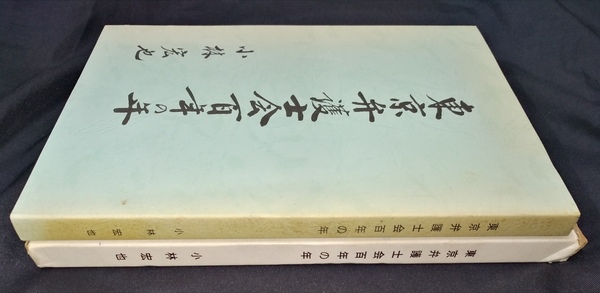 東京弁護士会百年の年
小林宏也
東京弁護士会百年の年 小林宏也
東京弁護士会百年の年 小林宏也